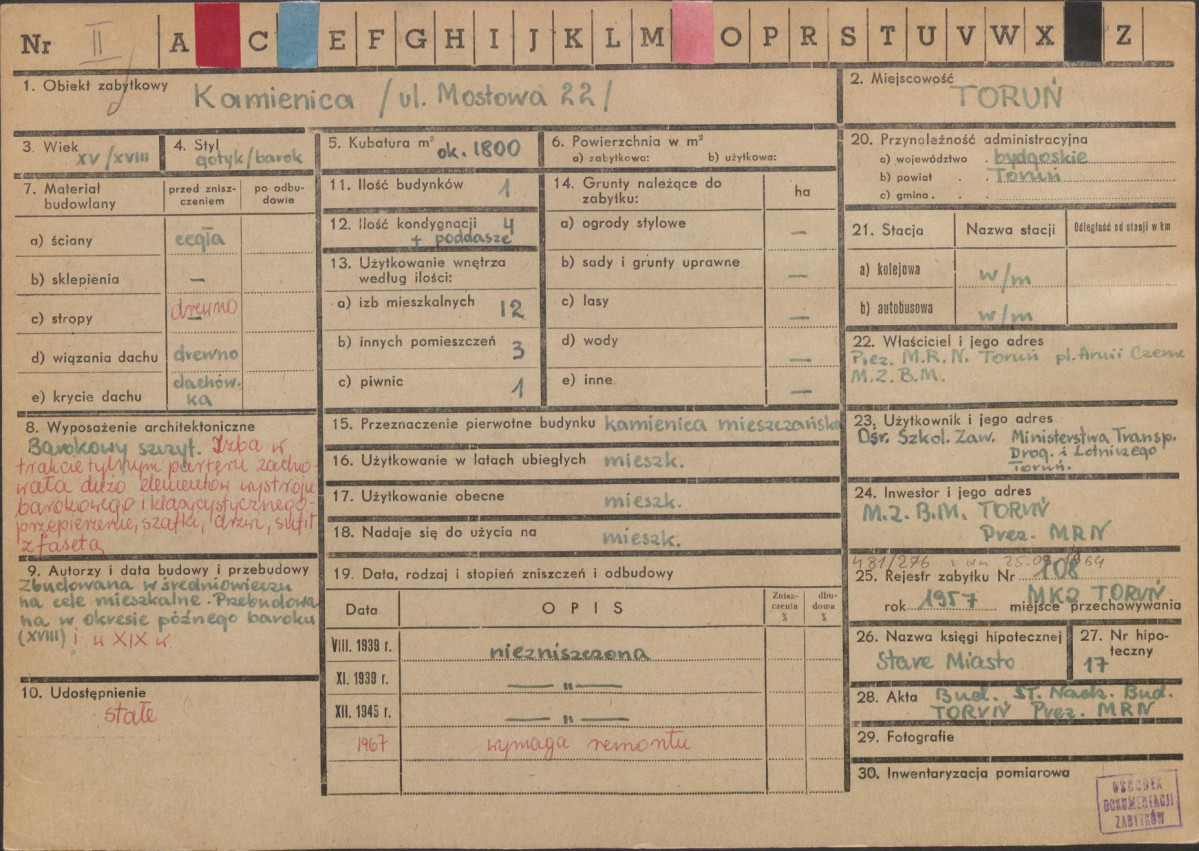 Nr II A C E F G H I J K L M O P R S T U V W X Z
1. Obiekt zabytkowy Kamienica /ul. Mostowa 22/
2. Miejscowość TORUŃ
3. Wiek XV/XVIII
4. Styl gotyk/barok
5. Kubatura m³ ok. 1800
6. Powierzchnia w m²
a) zabytkowa: b) użytkowa:
20. Przynależność administracyjna
a) województwo bydgoskie
b) powiat Toruń
c) gmina
7. Materiał budowlany
przed znisz-
czeniem
po odbu-
dowie
a) ściany cegła
b) sklepienia –
c) stropy drewno
d) wiązania dachu drewno
e) krycie dachu dachów-
ka
11. Ilość budynków 1
12. Ilość kondygnacji 4
+ poddasze
13. Użytkowanie wnętrza
według ilości:
a) izb mieszkalnych 12
b) innych pomieszczeń 3
c) piwnic 1
14. Grunty należące do
zabytku:
ha
a) ogrody stylowe –
b) sady i grunty uprawne –
c) lasy –
d) wody –
e) inne –
21. Stacja Nazwa stacji Odległość od stacji w km
a) kolejowa w/m
b) autobusowa w/m
22. Właściciel i jego adres
Prez. M.R.N. Toruń pl. Armii Czerw.
M.Z.B.M.
8. Wyposażenie architektoniczne
Barokowy szczyt. Izba w
trakcie tylnym parteru zacho-
wała dużo elementów wystroju
barokowego i klasycystycznego-
przepierzenie, szafki, drzwi, sufit
z fasetą
15. Przeznaczenie pierwotne budynku kamienica mieszczańska
16. Użytkowanie w latach ubiegłych mieszk.
17. Użytkowanie obecne mieszk.
18. Nadaje się do użycia na mieszk.
23. Użytkownik i jego adres
Ośr. Szkol. Zaw. Ministerstwa Transp.
Drog. i Lotniczego
Toruń.
24. Inwestor i jego adres
M.Z.B.M. TORUŃ
Prez. MRN
9. Autorzy i data budowy i przebudowy
Zbudowana w średniowieczu
na cele mieszkalne. Przebudowa-
na w okresie późnego baroku
(XVIII) i w XIX w.
10. Udostępnienie
stałe
19. Data, rodzaj i stopień zniszczeń i odbudowy
Data OPIS
Znisz-
czenia
%
dbu-
dowa
%
VIII. 1939 r. niezniszczona
XI. 1939 r. — " —
XII. 1945 r. — " —
1967 wymaga remontu
481/276
25. Rejestr zabytku Nr 108
rok 1957 miejsce przechowywania MKZ TORUŃ
26. Nazwa księgi hipotecznej
Stare Miasto
27. Nr hipo-
teczny
17
28. Akta Bud. ST. Nadz. Bud.
TORUŃ Prez. MRN
29. Fotografie
30. Inwentaryzacja pomiarowa
OŚRODEK
DOKUMENTACJI
ZABYTKÓW